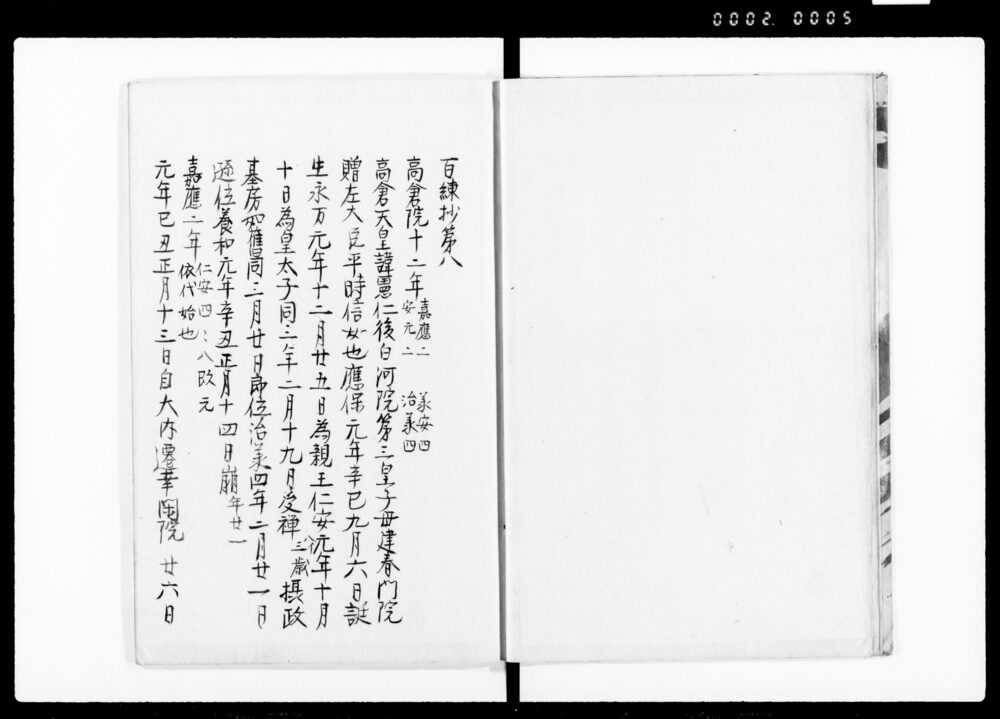 0002. 0005
百練抄第八
高倉院十二年 嘉應二 承安四
安元二 治承四
高倉天皇諱憲仁後白河院第三皇子母建春門院
贈左大臣平時信女也應保元年辛巳九月六日誕
生永万元年十二月廿五日為親王仁安元年十月
十日為皇太子同三年二月十九日受禅 八歳 摂政
基房如舊同三月廿日即位治承四年二月廿一日
遜位養和元年辛丑正月十四日崩 年廿一
嘉應二年 仁安四、八改元
依代始也
元年己丑正月十三日自大内遷幸閑院 廿六日